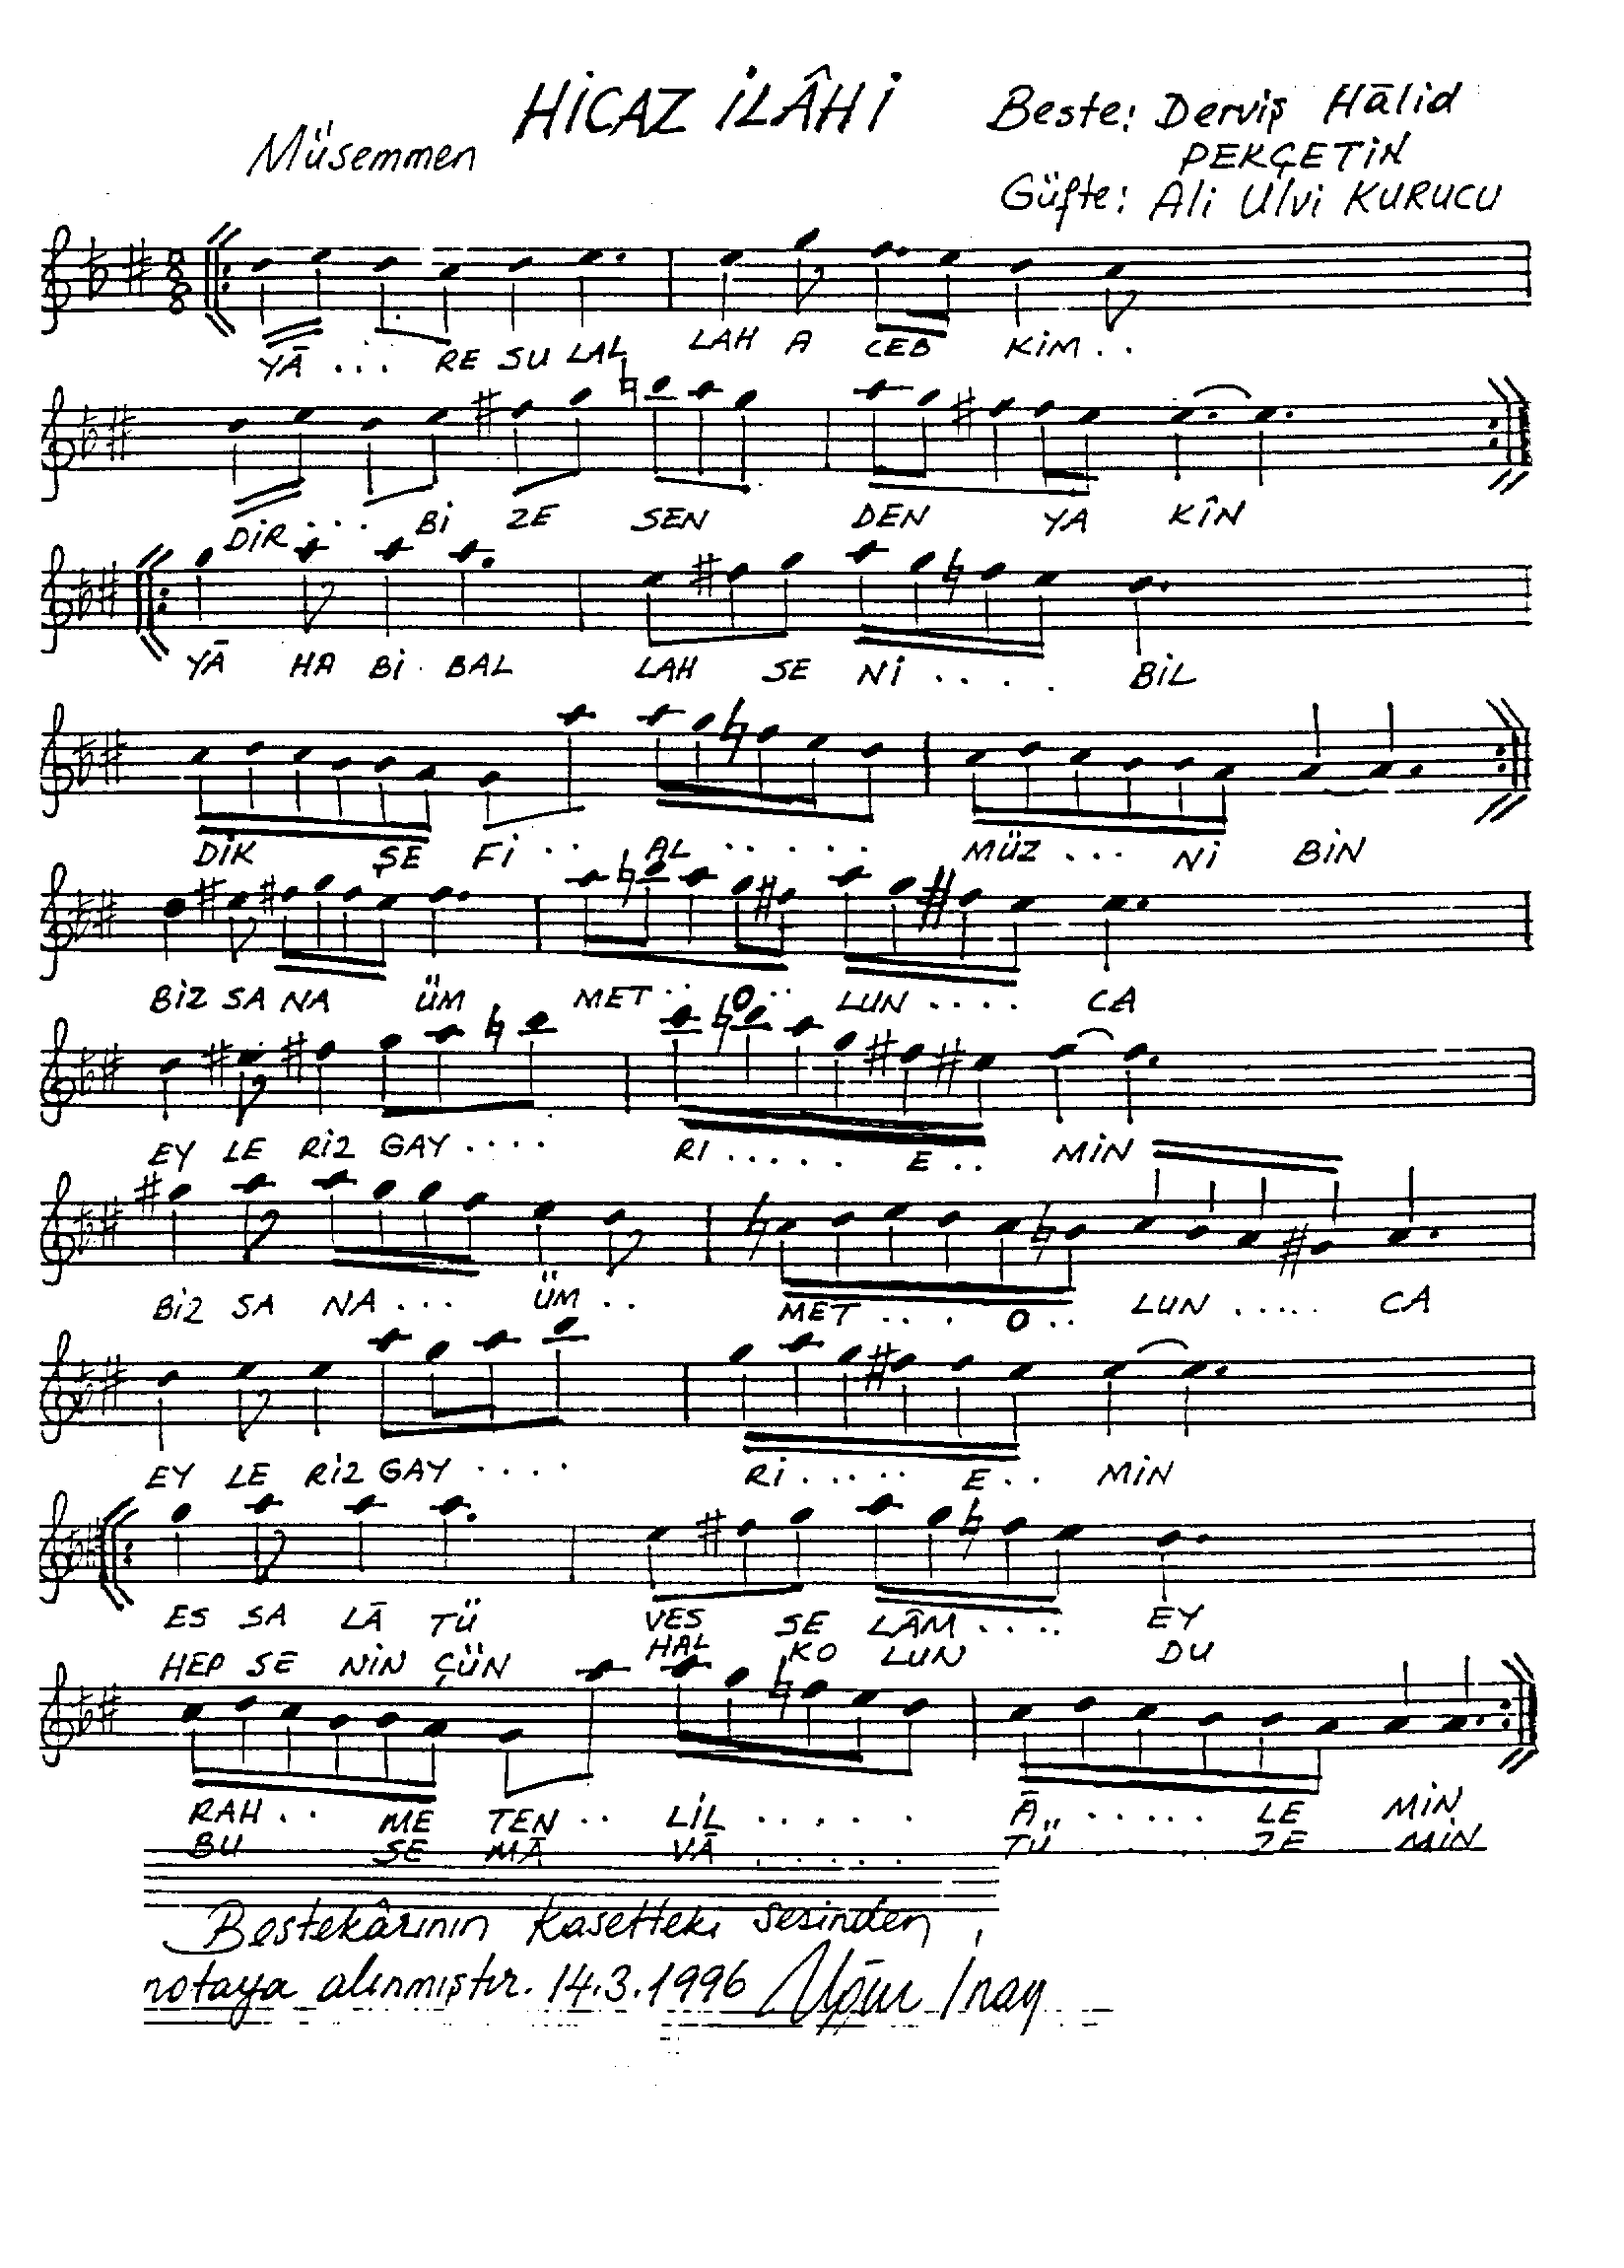 HİCAZ İLÂHİ
Müsemmen
Beste: Derviş Hālid
PEKÇETİN
Güfte: Ali Ulvi KURUCU
8
8
YĀ ... RE SU LAL LAH A CEB KİM ..
DİR ... Bİ ZE SEN DEN YA KÎN
YĀ HA Bİ . BAL LAH SE Nİ .... BİL
DİK ŞE Fİ .. AL ..... MÜZ ... Nİ BİN
BİZ SA NA ÜM MET .. O .. LUN .... CA
EY LE RİZ GAY .... RI ..... E .. MİN
BİZ SA NA ... ÜM .. MET ... O .. LUN ..... CA
EY LE RİZ GAY .... Rİ ..... E .. MİN
ES SA LĀ TÜ VES SE LÂM .... EY
HEP SE NİN ÇÜN HAL KO LUN DU
RAH .. ME TEN .. LİL ..... Ā ...... LE MİN
BU SE MĀ VĀ ..... TÜ .. ZE MİN
Bestekârının kasetteki sesinden
notaya alınmıştır. 14.3.1996 Uğur İnay